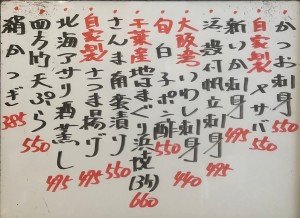 かつお刺身 550
自家製〆サバ 550
新いか刺身 495
活〆帆立刺身 495
大阪産いわし刺身 440
旬白子ポン酢 550
千葉産地はまぐり浜焼(3ケ) 660
さんま角煮漬り 550
自家製さつま揚げ 495
北海アサリ酒蒸し 495
四方竹天ぷら 550
絹かつぎ 385